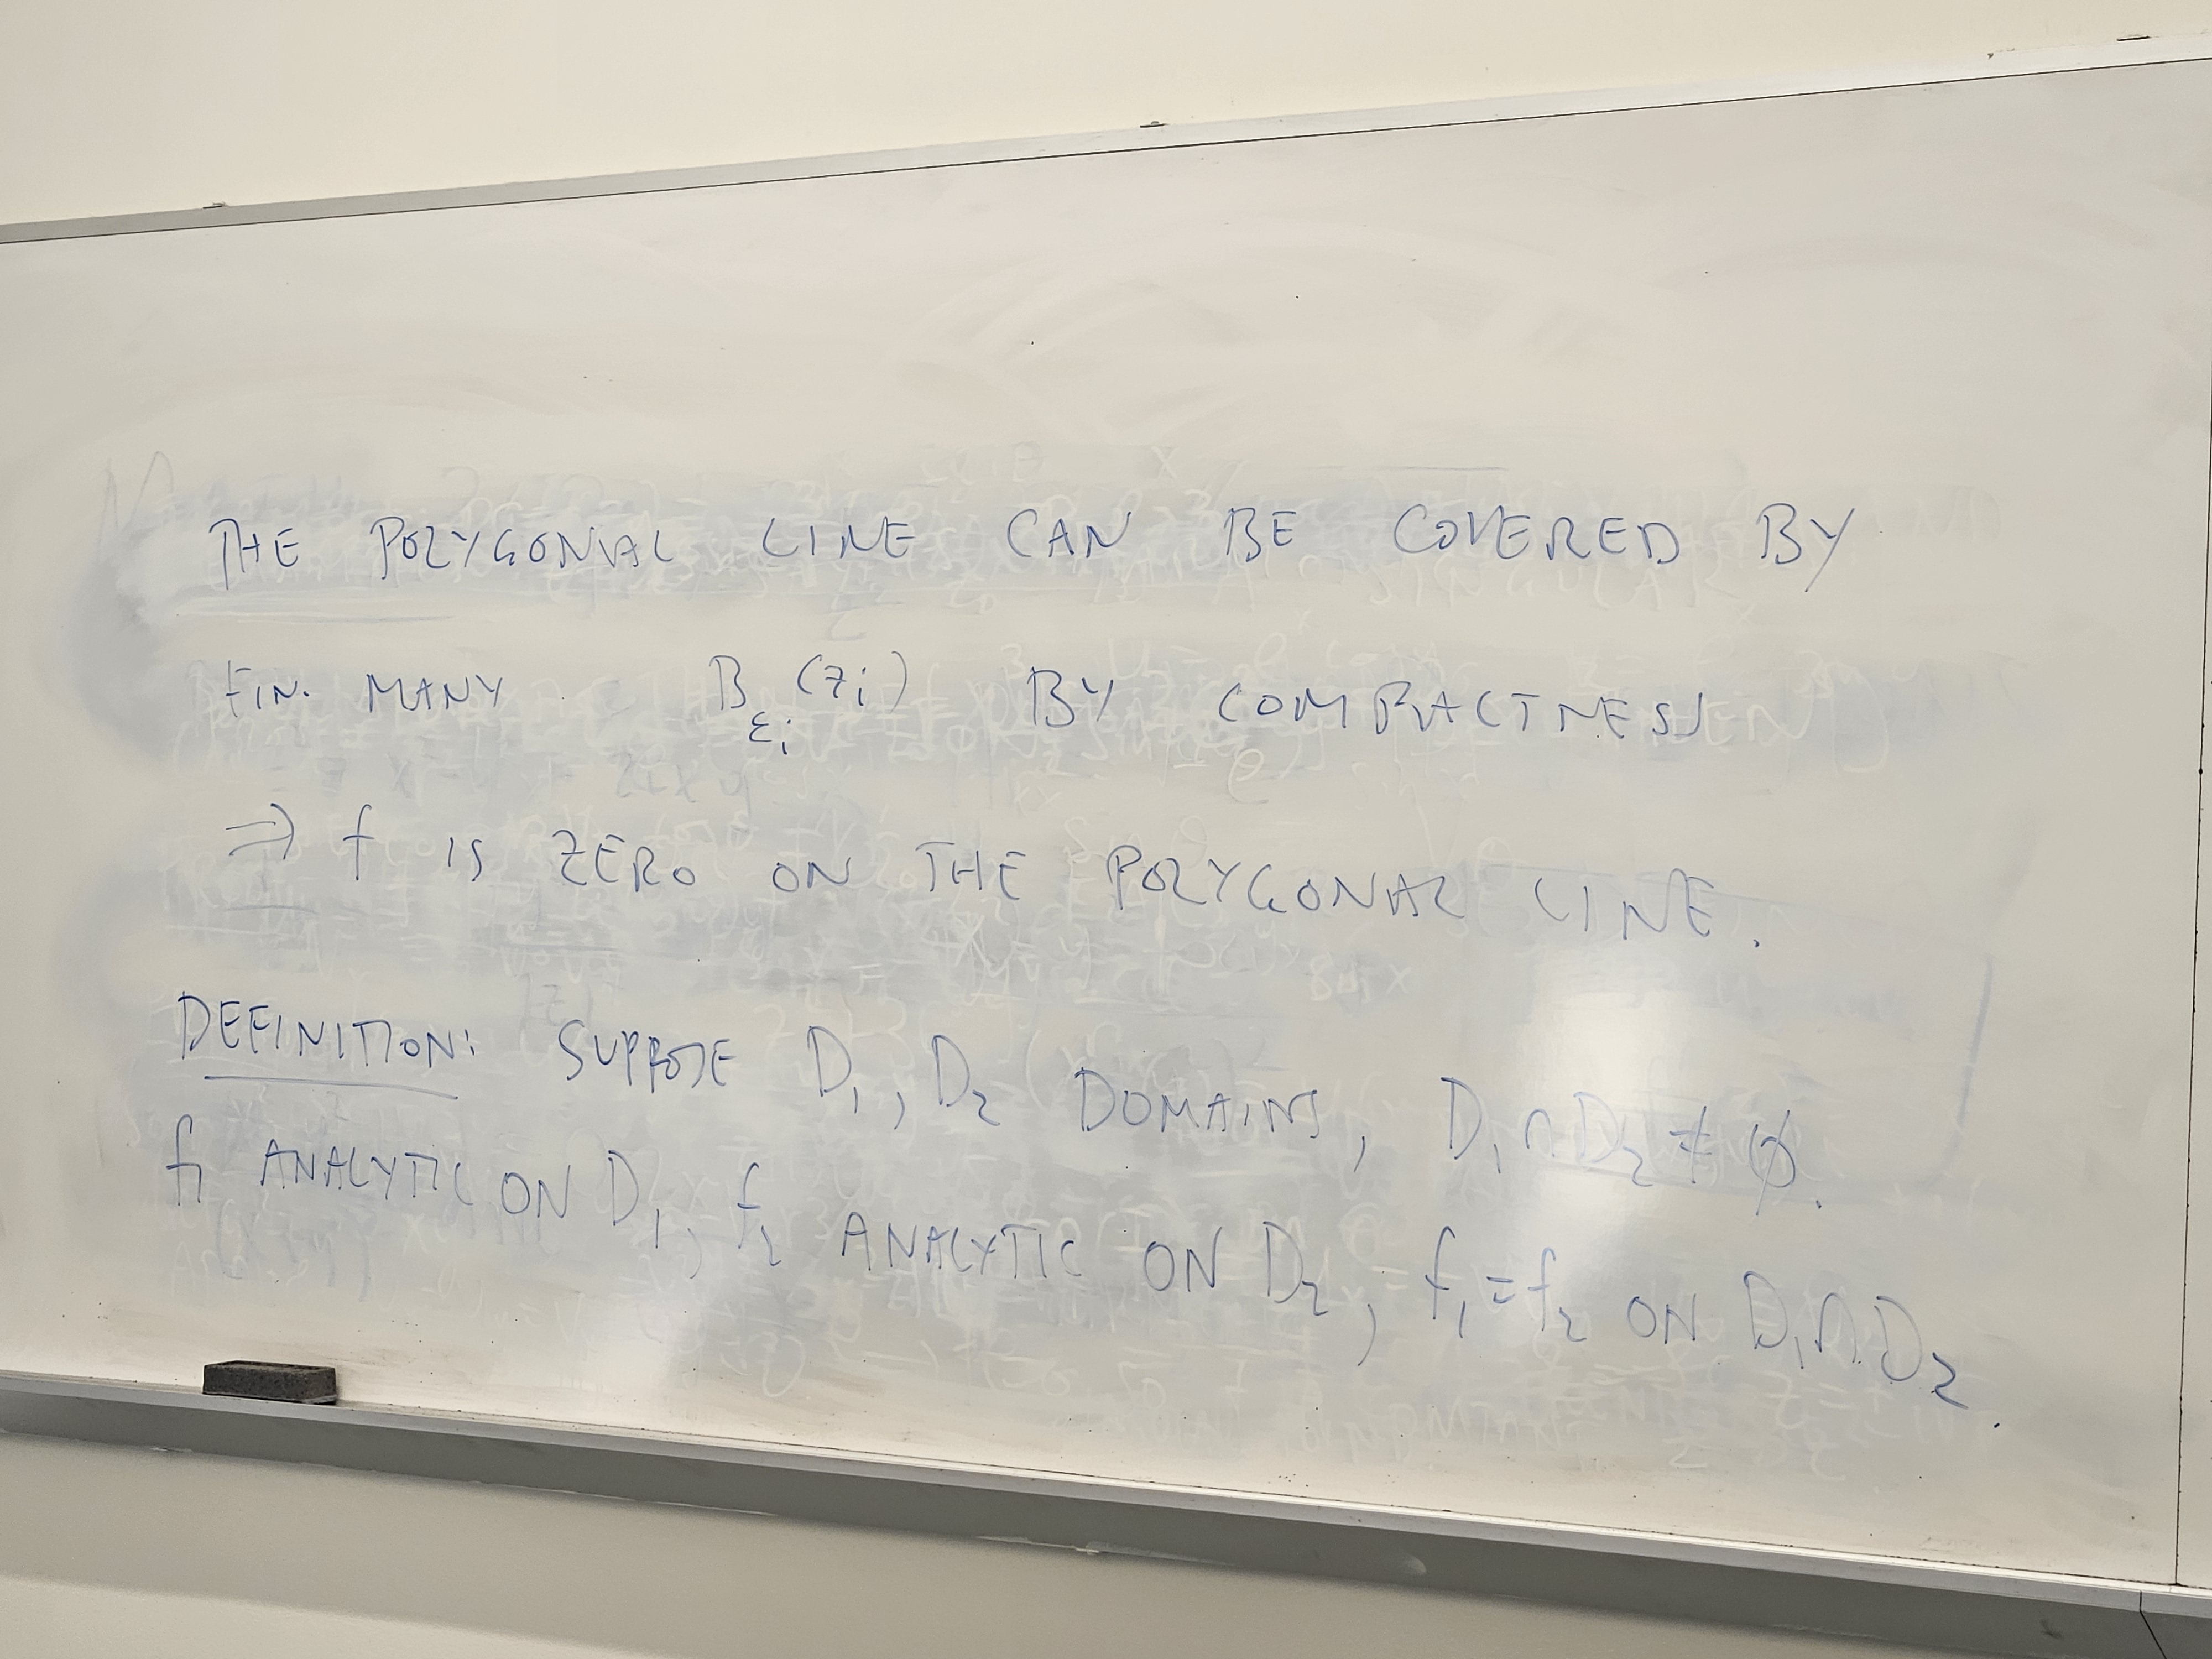 THE POLYGONAL LINE CAN BE COVERED BY
FIN. MANY B_{ε_i}(z_i) BY COMPACTNESS
⇒ f IS ZERO ON THE POLYGONAL LINE.
DEFINITION: SUPPOSE D₁, D₂ DOMAINS, D₁∩D₂ ≠ ∅.
f₁ ANALYTIC ON D₁, f₂ ANALYTIC ON D₂, f₁=f₂ ON D₁∩D₂.